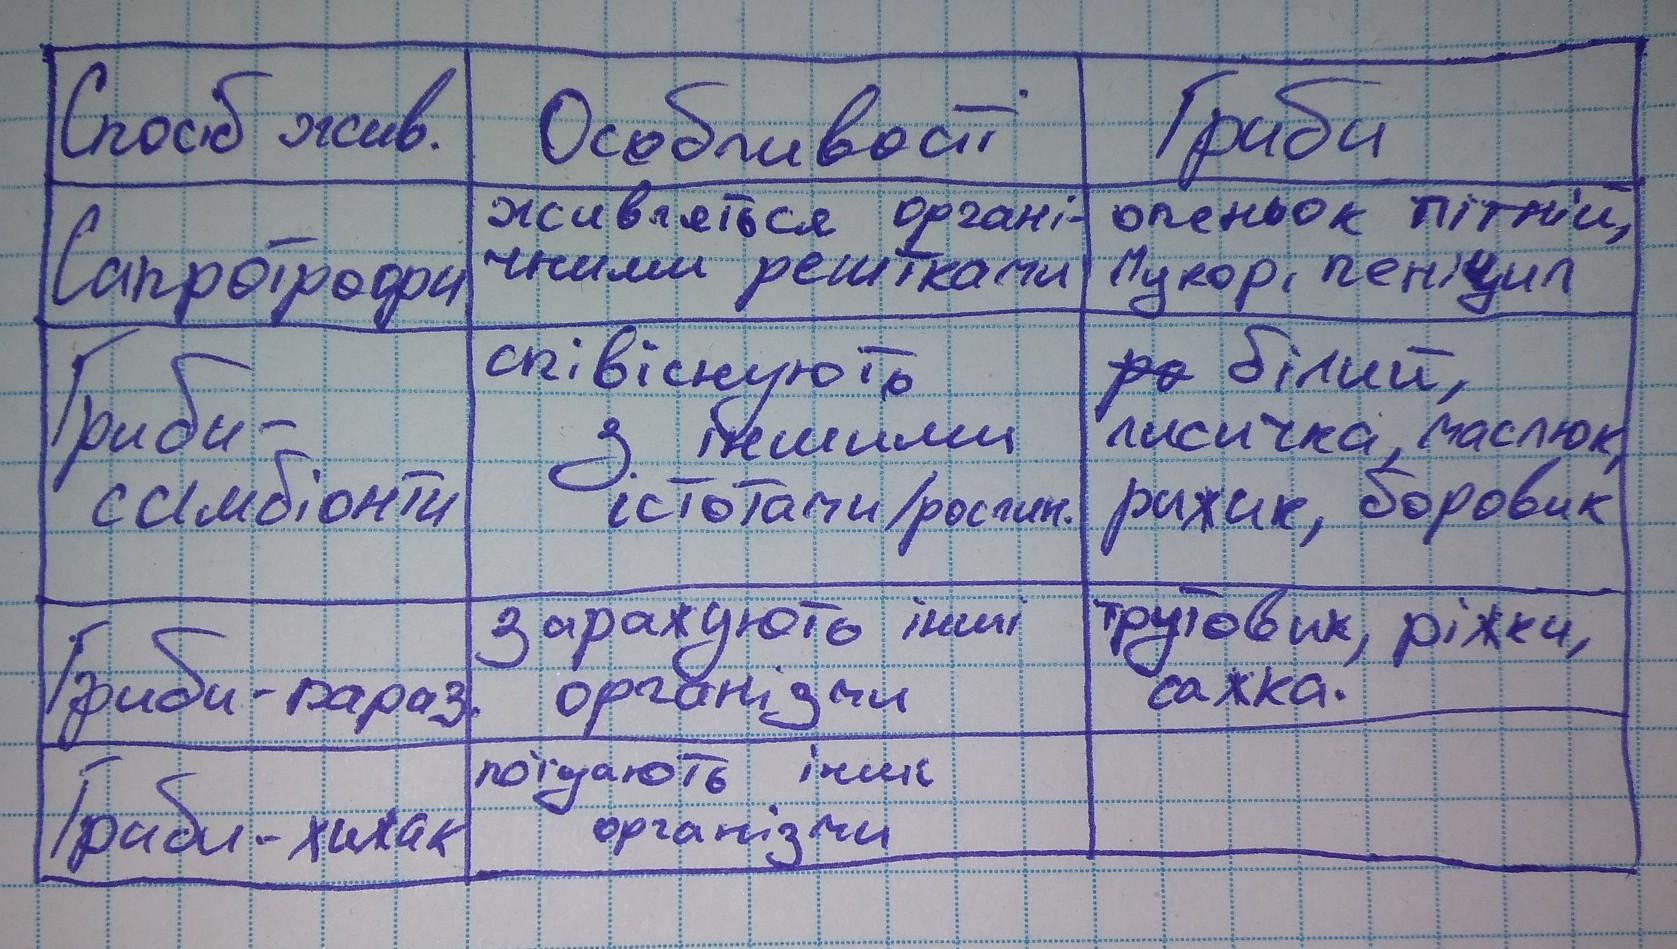 Спосіб жив. Особливості Гриби
Сапротрофи
живляться органі-
чними рештками
опеньок літній,
Мукор, пеніцил
Гриби-
симбіонти
співіснують
з іншими
істотами/рослин.
білий,
лисичка, маслюк,
рижик, боровик
Гриби-параз.
заражують інші
організми
трутовик, ріжки,
сажка.
Гриби-хижак
поїдають інші
організми